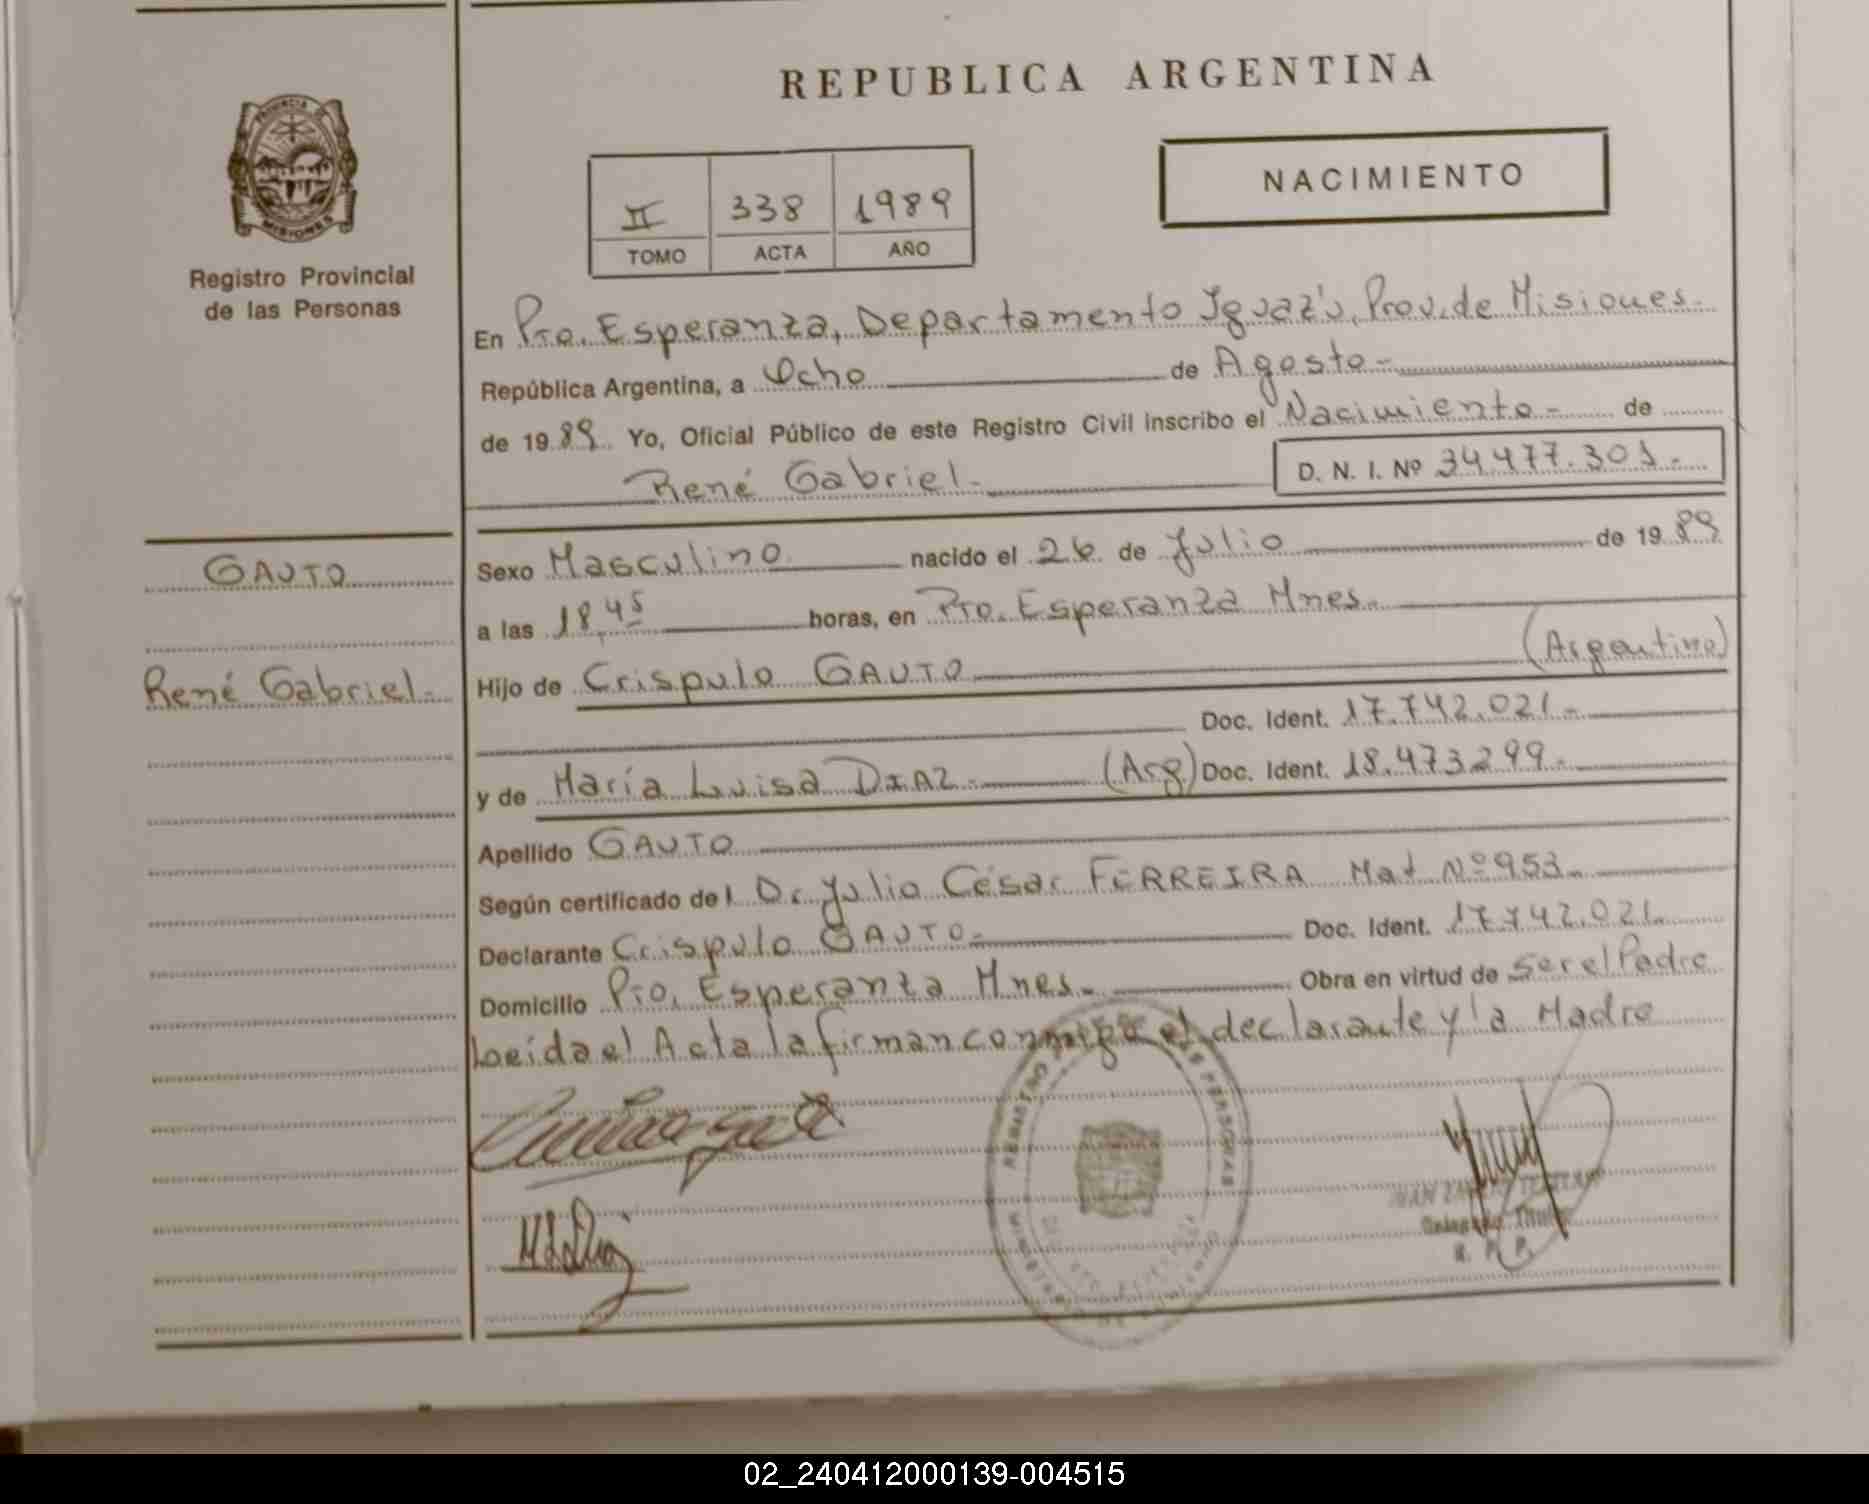 REPUBLICA ARGENTINA
PROVINCIA DE
MISIONES
Registro Provincial
de las Personas
II 338 1989
TOMO ACTA AÑO
NACIMIENTO
En Pto. Esperanza, Departamento Iguazú, Prov. de Misiones.
República Argentina, a Ocho de Agosto.-
de 1989 Yo, Oficial Público de este Registro Civil inscribo el Nacimiento - de
René Gabriel.- D. N. I. Nº 34.477.301.-
GAUTO
René Gabriel.-
Sexo Masculino nacido el 26 de Julio de 1989
a las 18,45 horas, en Pto. Esperanza Mnes.-
Hijo de Crispulo GAUTO (Argentino)
Doc. Ident. 17.742.021.-
y de María Luisa DIAZ.- (Arg) Doc. Ident. 18.473.299.-
Apellido GAUTO
Según certificado del Dr. Julio César FERREIRA Mat Nº 953.-
Declarante Crispulo GAUTO.- Doc. Ident. 17.742.021.
Domicilio Pto. Esperanza Mnes.- Obra en virtud de ser el Padre
Leida el Acta la firman conmigo el declarante y la Madre
REGISTRO DE LAS PERSONAS
MINISTERIO DE GOBIERNO
Delegado Titular
R. P. P.
02_240412000139-004515